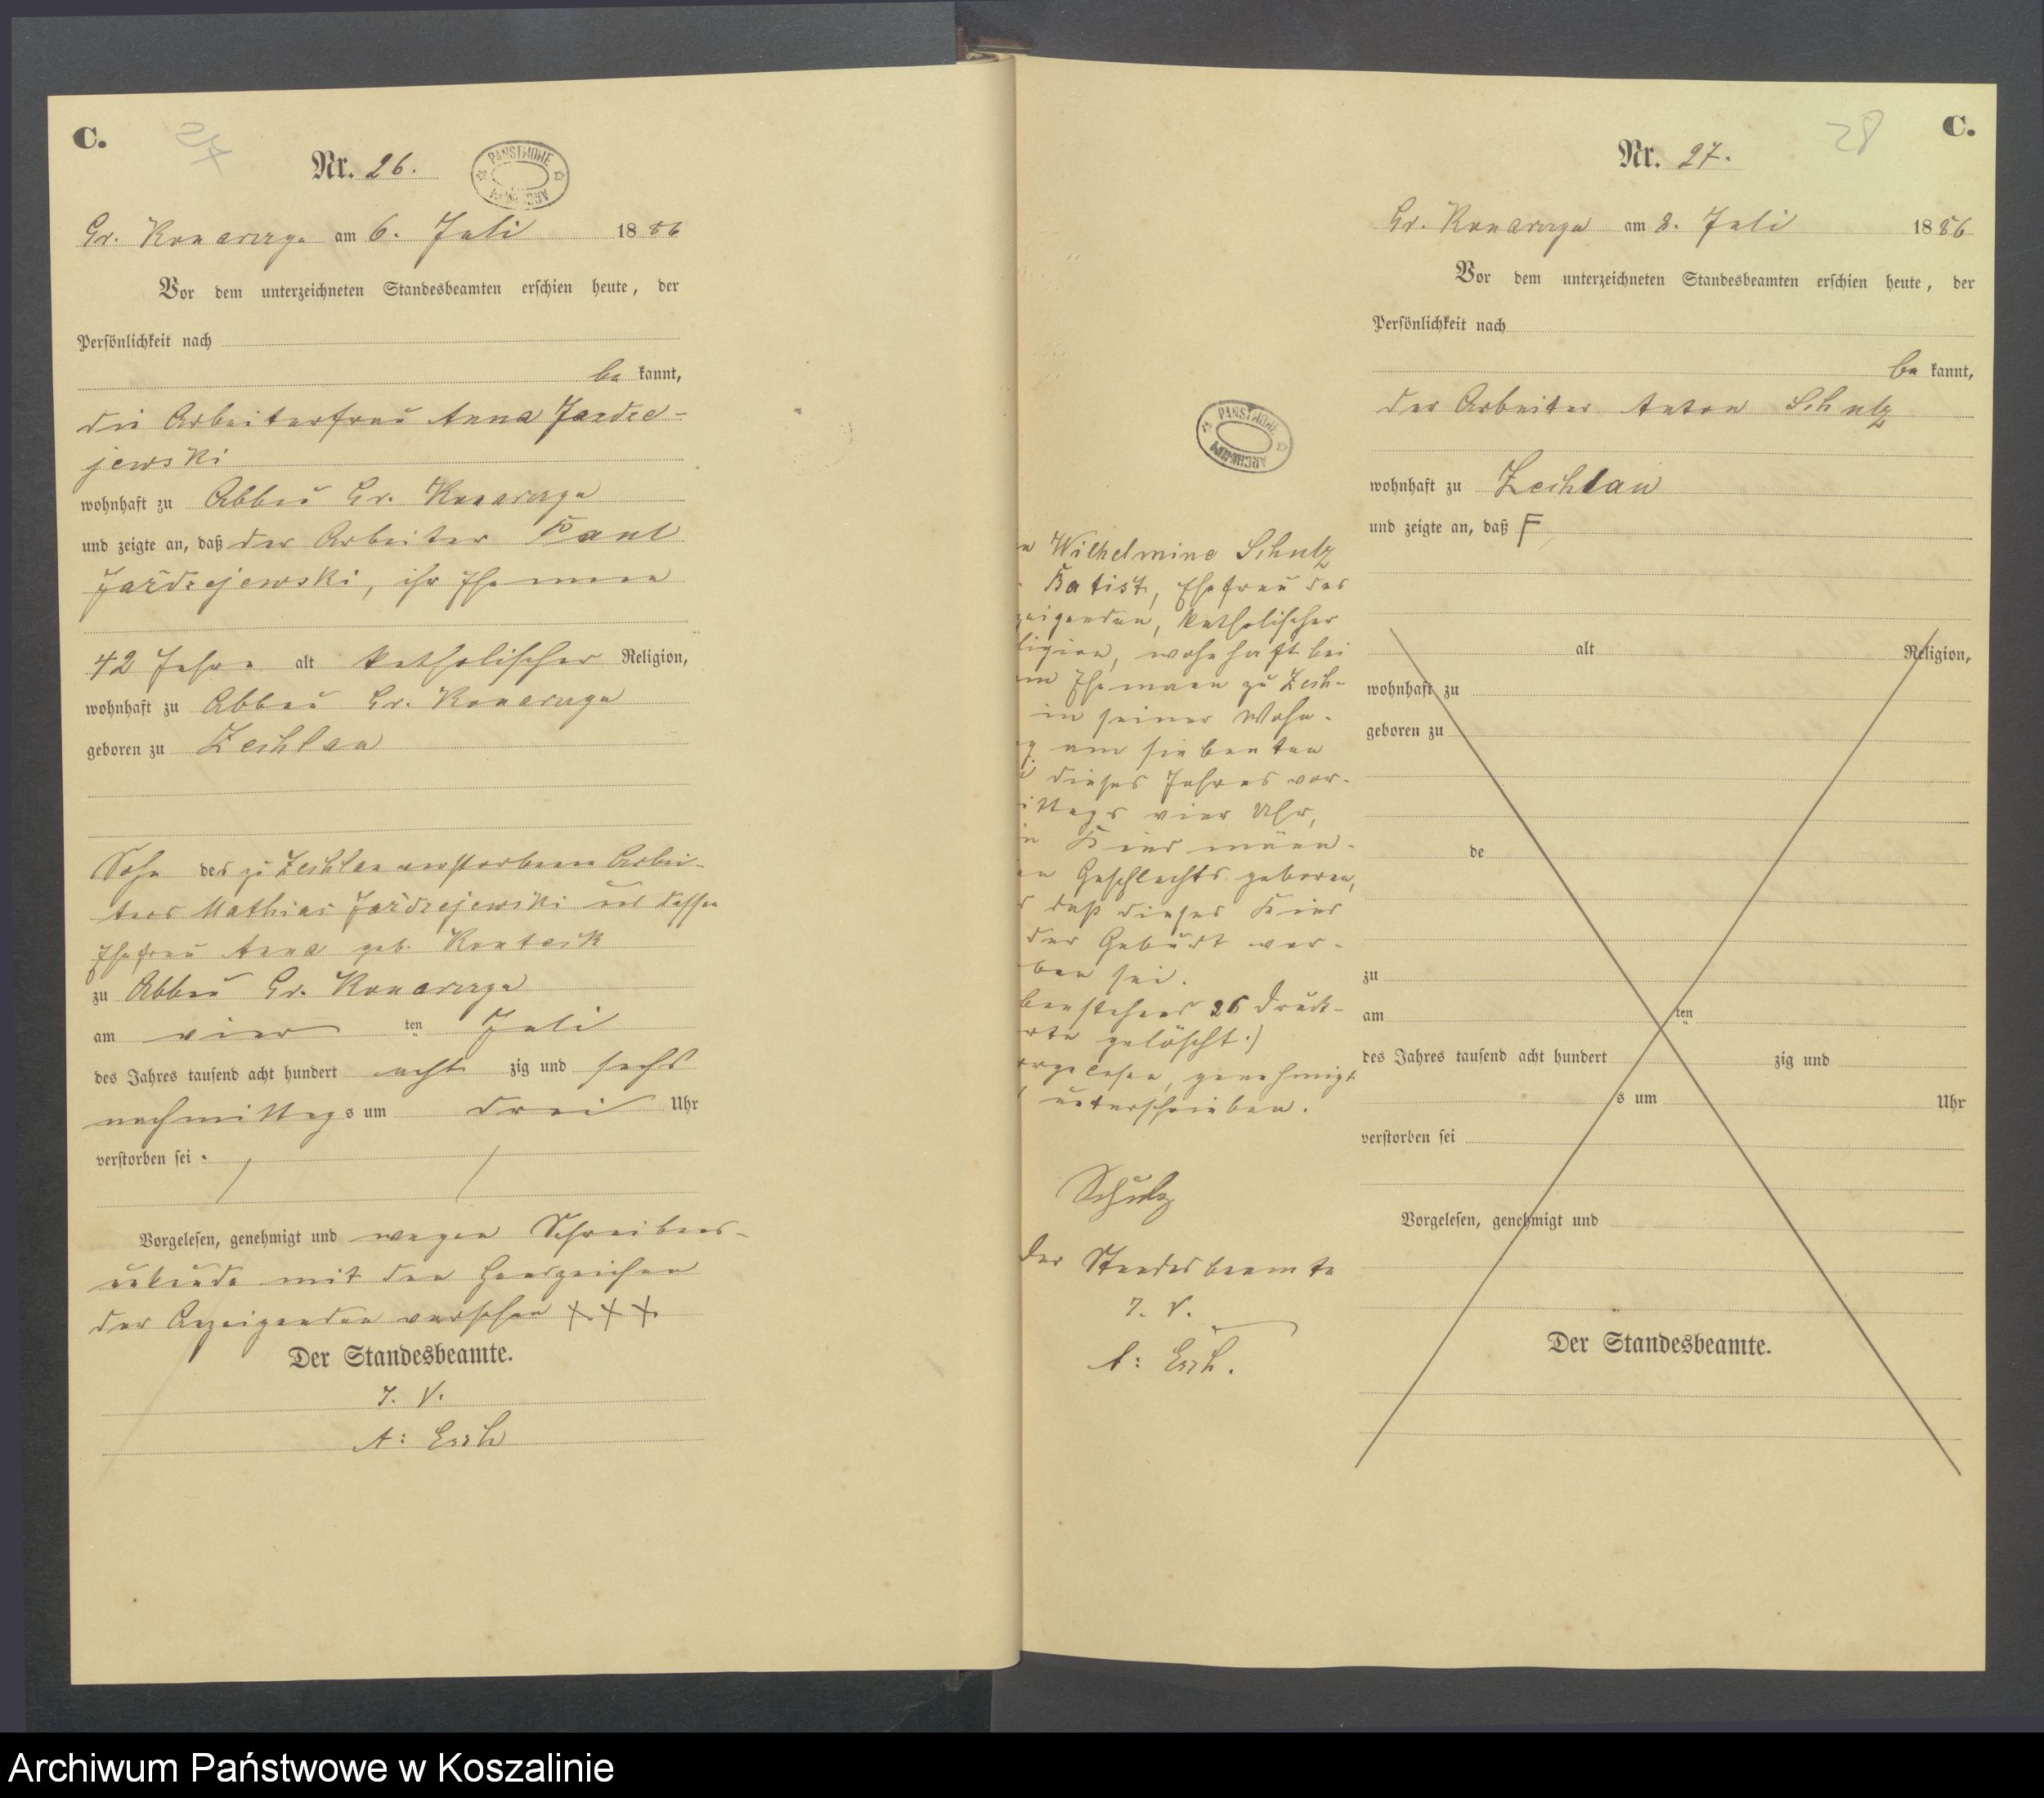 C.
27
Nr. 26.
PANSTWOWE ARCHIWUM
Gr. Konarczyn am 6. Juli 1886
Vor dem unterzeichneten Standesbeamten erschien heute, der
Persönlichkeit nach
be kannt,
die Arbeiterfrau Anna Jazdre-
jewski
wohnhaft zu Abbau Gr. Konarczyn
und zeigte an, daß der Arbeiter Paul
Jazdrejewski, ihr Ehemann
42 Jahre alt katholischer Religion,
wohnhaft zu Abbau Gr. Konarczyn
geboren zu Zechlau
Sohn des zu Zechlau verstorbenen Arbei-
ters Mathias Jazdrejewski und dessen
Ehefrau Anna geb.
zu Abbau Gr. Konarczyn
am vier ten Juli
des Jahres tausend acht hundert acht zig und sechs
nachmittag s um drei Uhr
verstorben sei.
Vorgelesen, genehmigt und wegen Schreibens-
unkunde mit den Handzeichen
der Anzeigenden versehen + + +
Der Standesbeamte.
I. V.
A: Esch
C.
28
Nr. 27.
Gr. Konarczyn am 8. Juli 1886
Vor dem unterzeichneten Standesbeamten erschien heute, der
Persönlichkeit nach
be kannt,
der Arbeiter Anton Schulz
wohnhaft zu Zechlau
und zeigte an, daß F
alt Religion,
wohnhaft zu
geboren zu
de
zu
am ten
des Jahres tausend acht hundert zig und
s um Uhr
verstorben sei
Vorgelesen, genehmigt und
Der Standesbeamte.
PANSTWOWE ARCHIWUM
Wilhelmine Schulz
Batist, Ehefrau des
zeigenden, katholischer
ligion, wohnhaft bei
Ehemann zu Zech-
in seiner Wohn-
g am siebenten
dieses Jahres vor-
ittags vier Uhr,
n Kind männ-
en Geschlechts geboren,
d daß dieses Kind
der Geburt ver-
ben sei.
benstehend 26 Druck-
rte gelöscht.)
orgelesen, genehmigt
unterschrieben.
Schulz
Der Standesbeamte
I. V.
A: Esch.
Archiwum Państwowe w Koszalinie